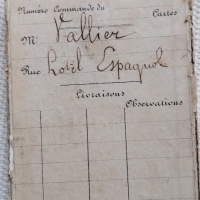 Numéro Commande du Cartes
M Vallier
Rue Lotel Espagnol
Livraisons
Observations